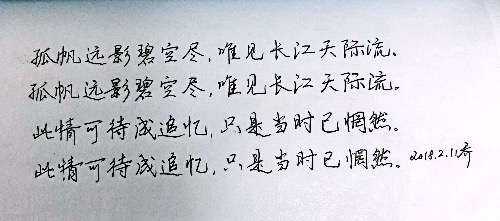 孤帆远影碧空尽,唯见长江天际流。
孤帆远影碧空尽,唯见长江天际流。
此情可待成追忆,只是当时已惘然。
此情可待成追忆,只是当时已惘然。2018.2.11